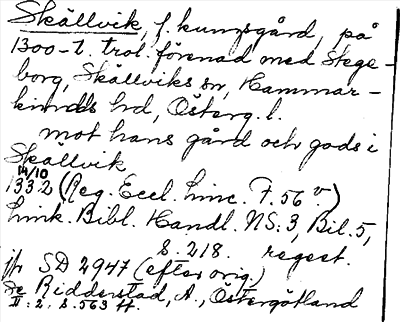 Skällvik, f. kungsgård, på
1300-t. trol. förenad med Stege-
borg, Skällviks sn, Hammar-
kinds hd, Österg. l.
mot hans gård och gods i
Skällvik
14/10
1332 (Reg. Eccl. Linc. F. 56 v.)
Link. Bibl. Handl. NS: 3, Bil. 5,
S. 218. regest.
jfr SD 2947 (efter orig.)
Se Ridderstad, A., Östergötland
II: 2. s. 563 ff.